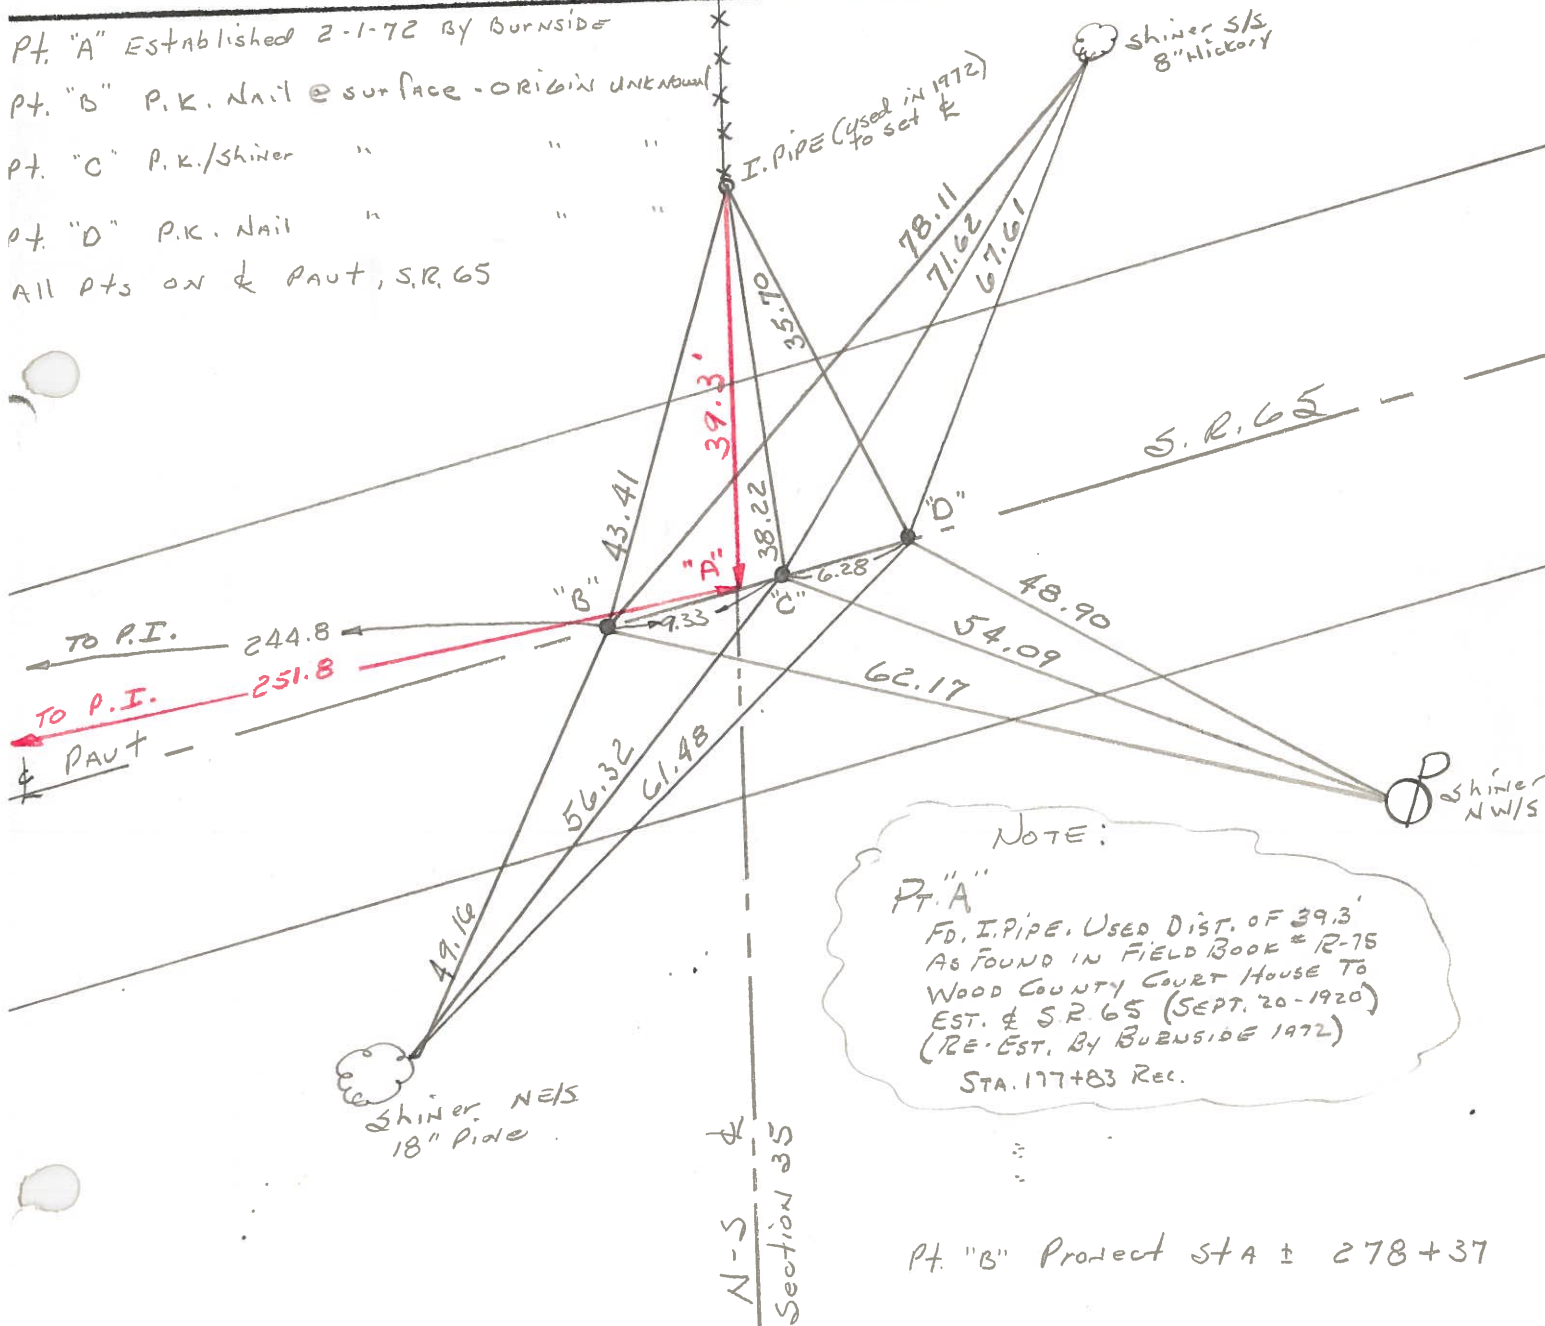 Pt. "A" Established 2-1-72 By Burnside
Pt. "B" P.K. Nail @ surface - ORIGIN UNKNOWN
Pt. "C" P.K./Shiner " " "
Pt. "D" P.K. Nail " " "
All Pts ON ℄ PAVT, S.R. 65
I. PIPE (used in 1972)
to set ℄
Shiner S/S
8" Hickory
78.11
71.62
67.61
35.70
39.3'
43.41
38.22
S.R. 65
"D"
"A"
"B"
"C"
6.28
9.33
48.90
54.09
62.17
TO P.I. 244.8
TO P.I. 251.8
℄ PAVT
56.32
61.48
49.16
P
Shiner
NW/S
NOTE:
PT. "A"
FD. I.PIPE. USED DIST. OF 39.3'
AS FOUND IN FIELD BOOK # R-75
WOOD COUNTY COURT HOUSE TO
EST. ℄ S.R. 65 (SEPT. 20-1920)
(RE-EST. BY BURNSIDE 1972)
STA. 177+83 REC.
Shiner NE/S
18" Pine
N-S ℄
Section 35
Pt. "B" Project StA ± 278+37